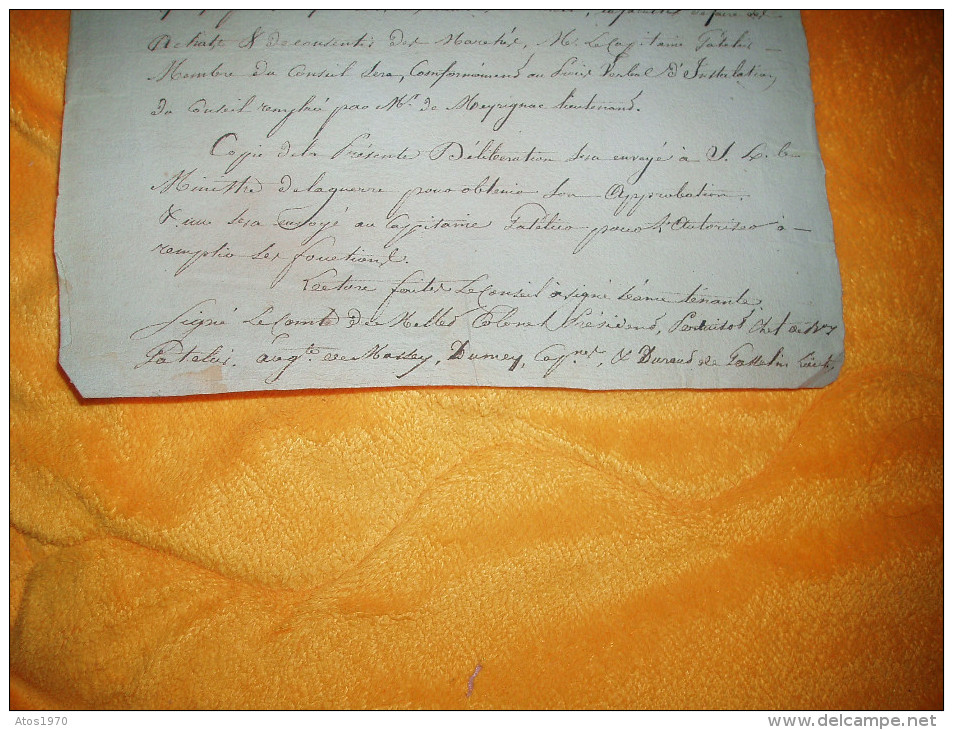 Achats & de consentir des Marchés, Mr. Le Capitaine
Membre du Conseil sera, Conformément au Procès Verbal d'Instalation,
du Conseil remplacé par Mr. de Meyrignac lieutenant.
Copie de la Présente Délibération sera envoyé à S. E. le
Ministre de la guerre pour obtenir son Approbation.
& une sera envoyé au Capitaine pour l'Autoriser à
remplir ses fonctions.
Lecture faite, Le Conseil a signé séance tenante
Signé Le Comte de Colonel Président, Chef de
de Massey, Dumey, & Durand de
Atos1970
delcampe.net